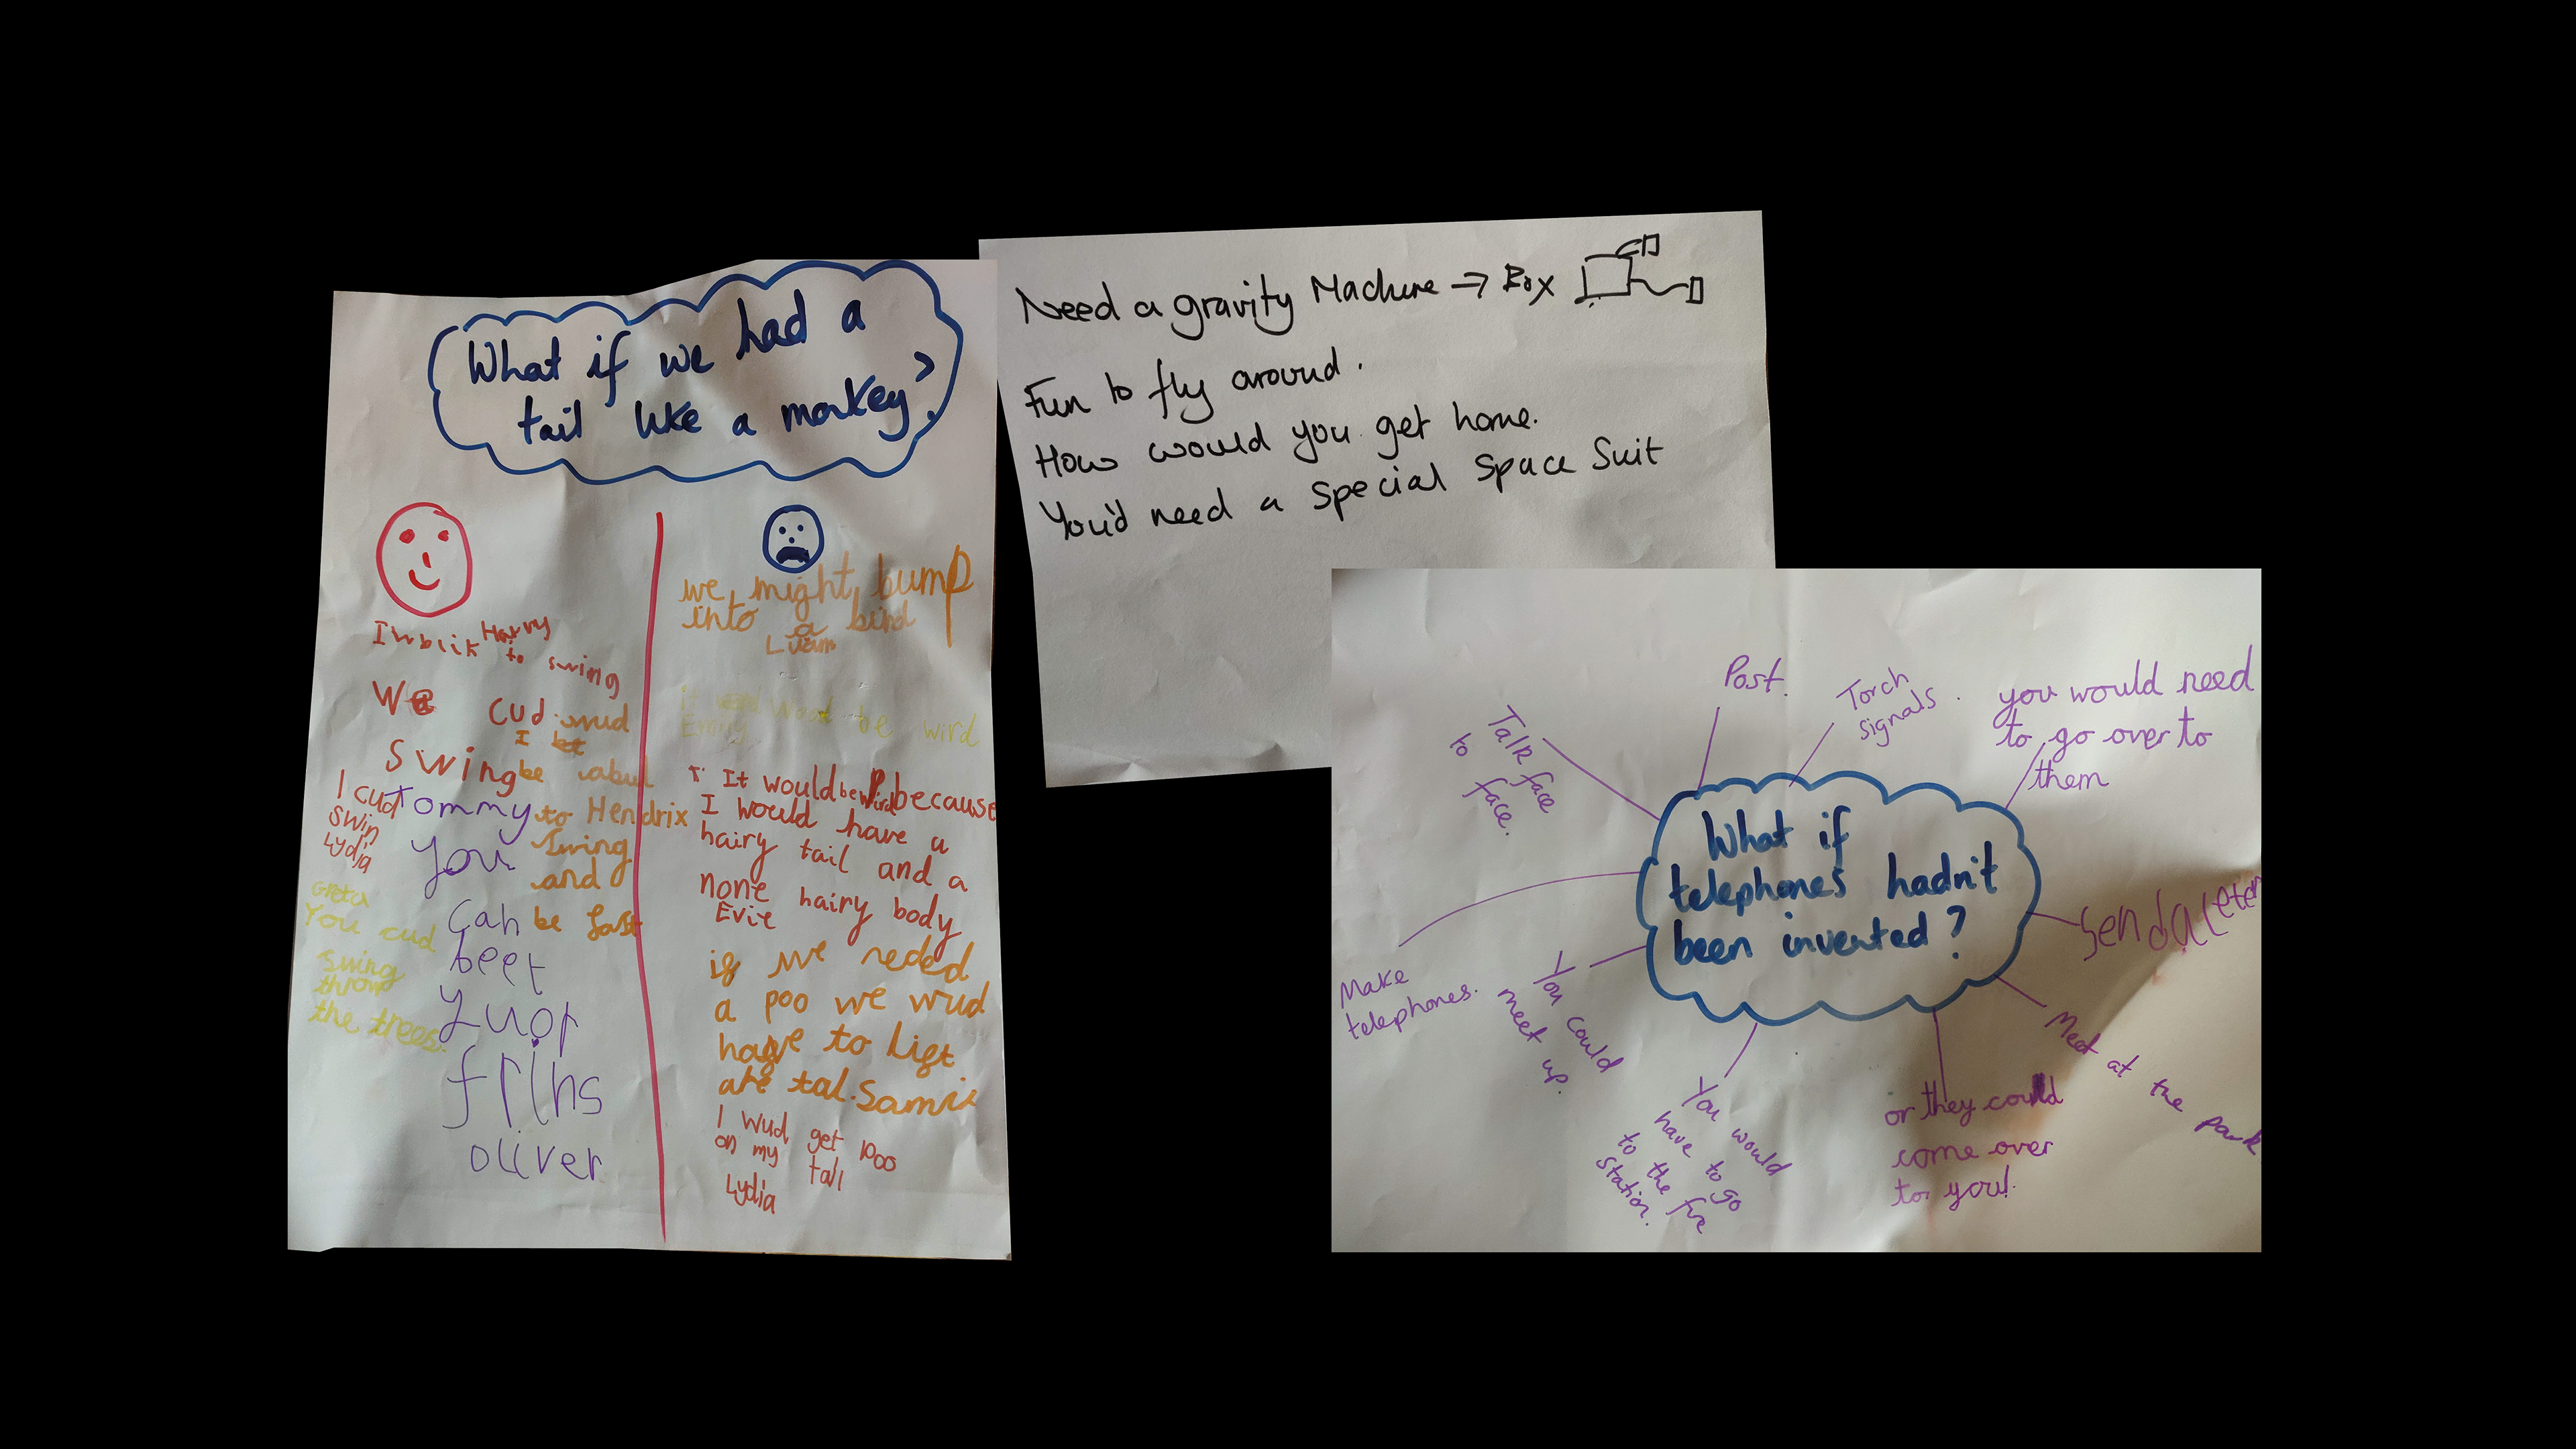 What if we had a
tail like a monkey?
Harvy
to swing
We
cud
swing
Tommy
I wud
be abul
to Hendrix
swing
and
be fast
I cud
swin
Lydia
Greta
You cud
swing
throw
the trees.
You
can
beet
frins
oliver
we might bump
into a bird
Liam
be wird
It would be wird because
I would have a
hairy tail and a
none hairy body
Evie
if we neded
a poo we wud
have to lift
tal. Samuel
I wud get poo
on my tail
Lydia
Need a gravity Machine → Box
Fun to fly around.
How would you get home.
You'd need a special Space Suit
What if
telephones hadn't
been invented?
Talk face
to face.
Post.
Torch
signals.
you would need
to go over to
them
send a leter
Meet at the park
or they could
come over
to you!
You would
have to go
to the fire
station.
You could
meet up.
Make
telephones.